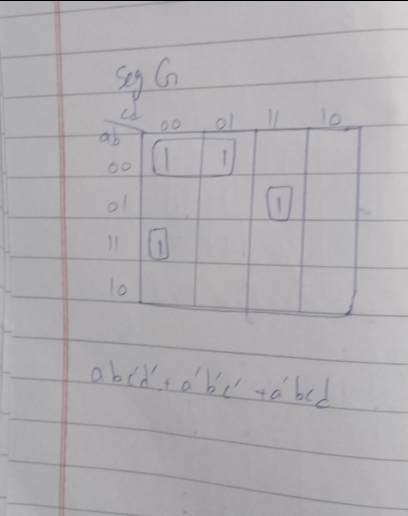 Seg G
cd
ab 00 01 11 10
00 1 1
01 1
11 1
10
abc'd' + a'b'c' + a'bcd